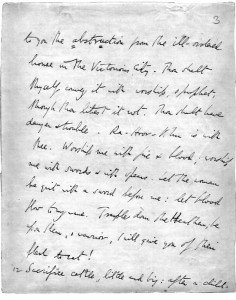 3
to you the abstruction from the ill-ordered
house in the Victorious City. Thou shalt
thyself convey it with worship, o prophet,
though thou likest it not. Thou shalt have
danger & trouble. Ra-Hoor-Khu is with
thee. Worship me with fire & blood; worship
me with swords & with spears. Let the woman
be girt with a sword before me: let blood
flow to my name. Trample down the Heathen; be
upon them, o warrior, I will give you of their
flesh to eat!
12 Sacrifice cattle, little and big: after a child.